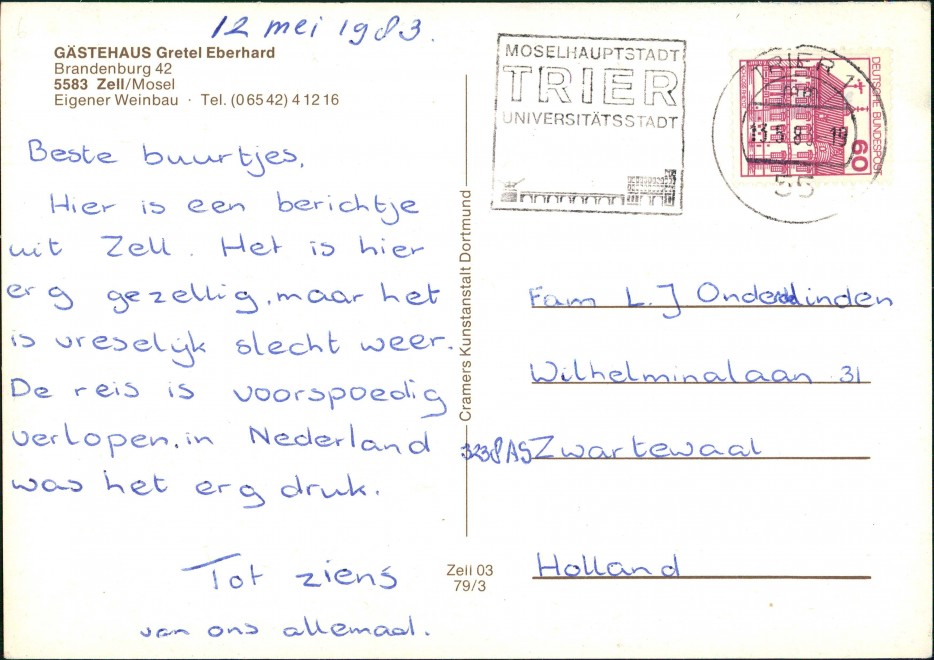 12 mei 1983.
GÄSTEHAUS Gretel Eberhard
Brandenburg 42
5583 Zell/Mosel
Eigener Weinbau · Tel. (0 65 42) 4 12 16
Beste buurtjes,
Hier is een berichtje
uit Zell. Het is hier
erg gezellig, maar het
is vreselijk slecht weer.
De reis is voorspoedig
verlopen, in Nederland
was het erg druk.
Tot ziens
van ons allemaal.
Cramers Kunstanstalt Dortmund
Zell 03
79/3
MOSELHAUPTSTADT
TRIER
UNIVERSITÄTSSTADT
TRIER 1
55
DEUTSCHE BUNDESPOST
60
Fam L. J Onderdlinden
Wilhelminalaan 31
3238AS Zwartewaal
Holland